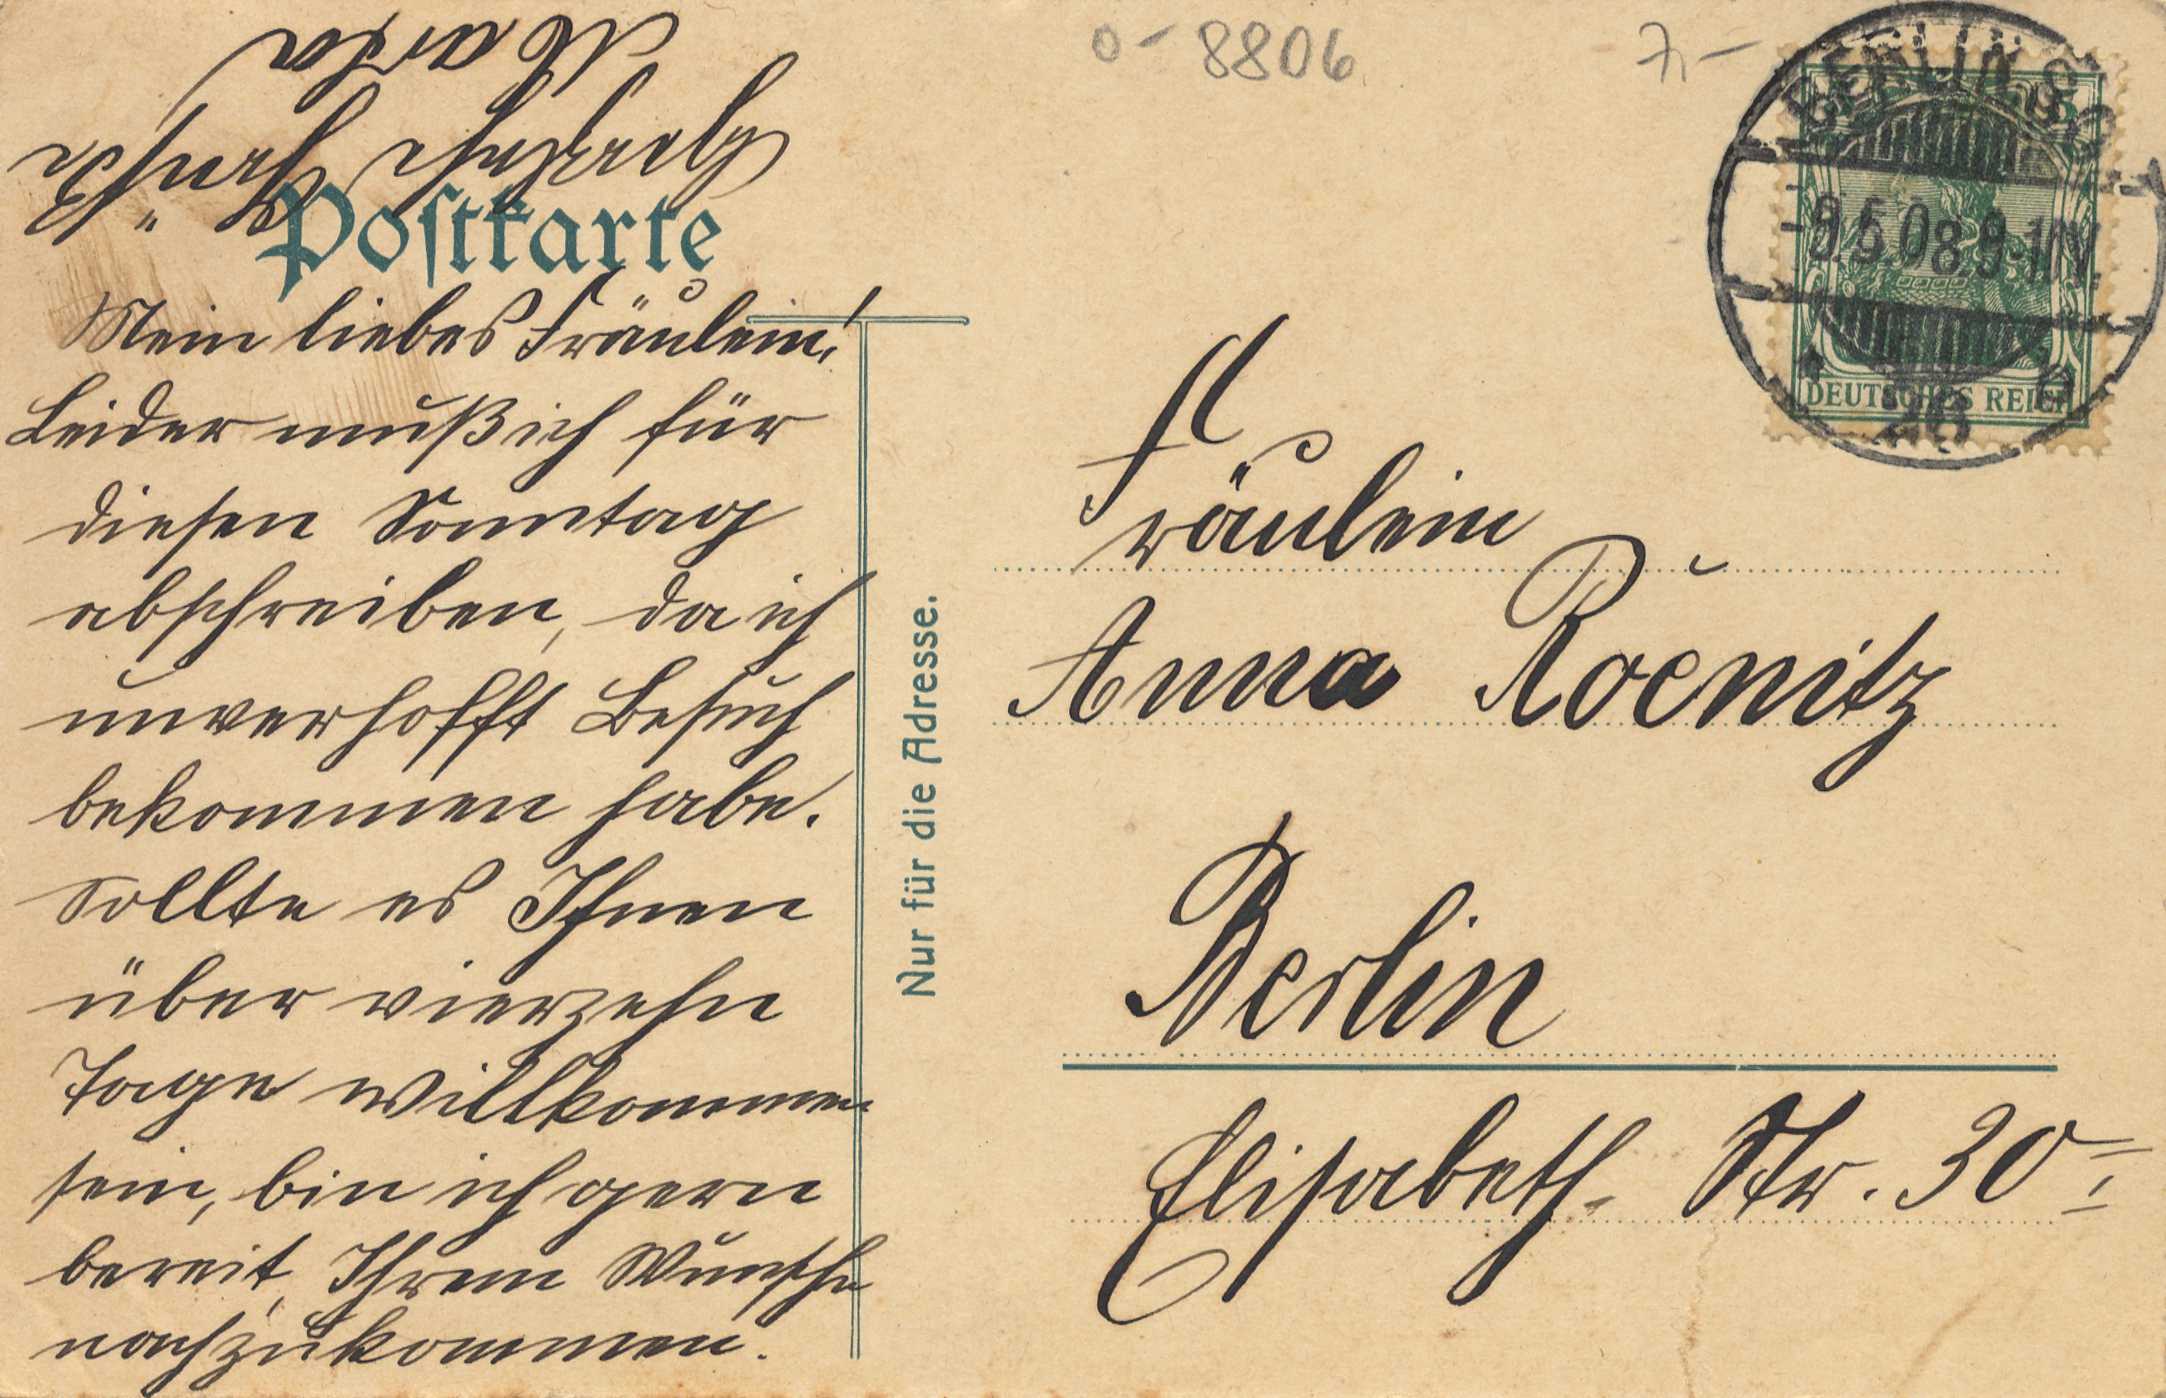 o- 8806
7,-
BERLIN S.O.
-9.5.08.9-10V.
DEUTSCHES REICH
26
Postkarte
Mein liebes Fräulein!
Leider muß ich für
diesen Sonntag
abschreiben, da ich
unverhofft Besuch
bekommen habe.
Sollte es Ihnen
über vierzehn
Tage willkommen
sein, bin ich gern
bereit, Ihrem Wunsche
nachzukommen.
Herzliche Grüße
Nur für die Adresse.
Fräulein
Anna Roenitz
Berlin
Elisabeth-Str. 30 I